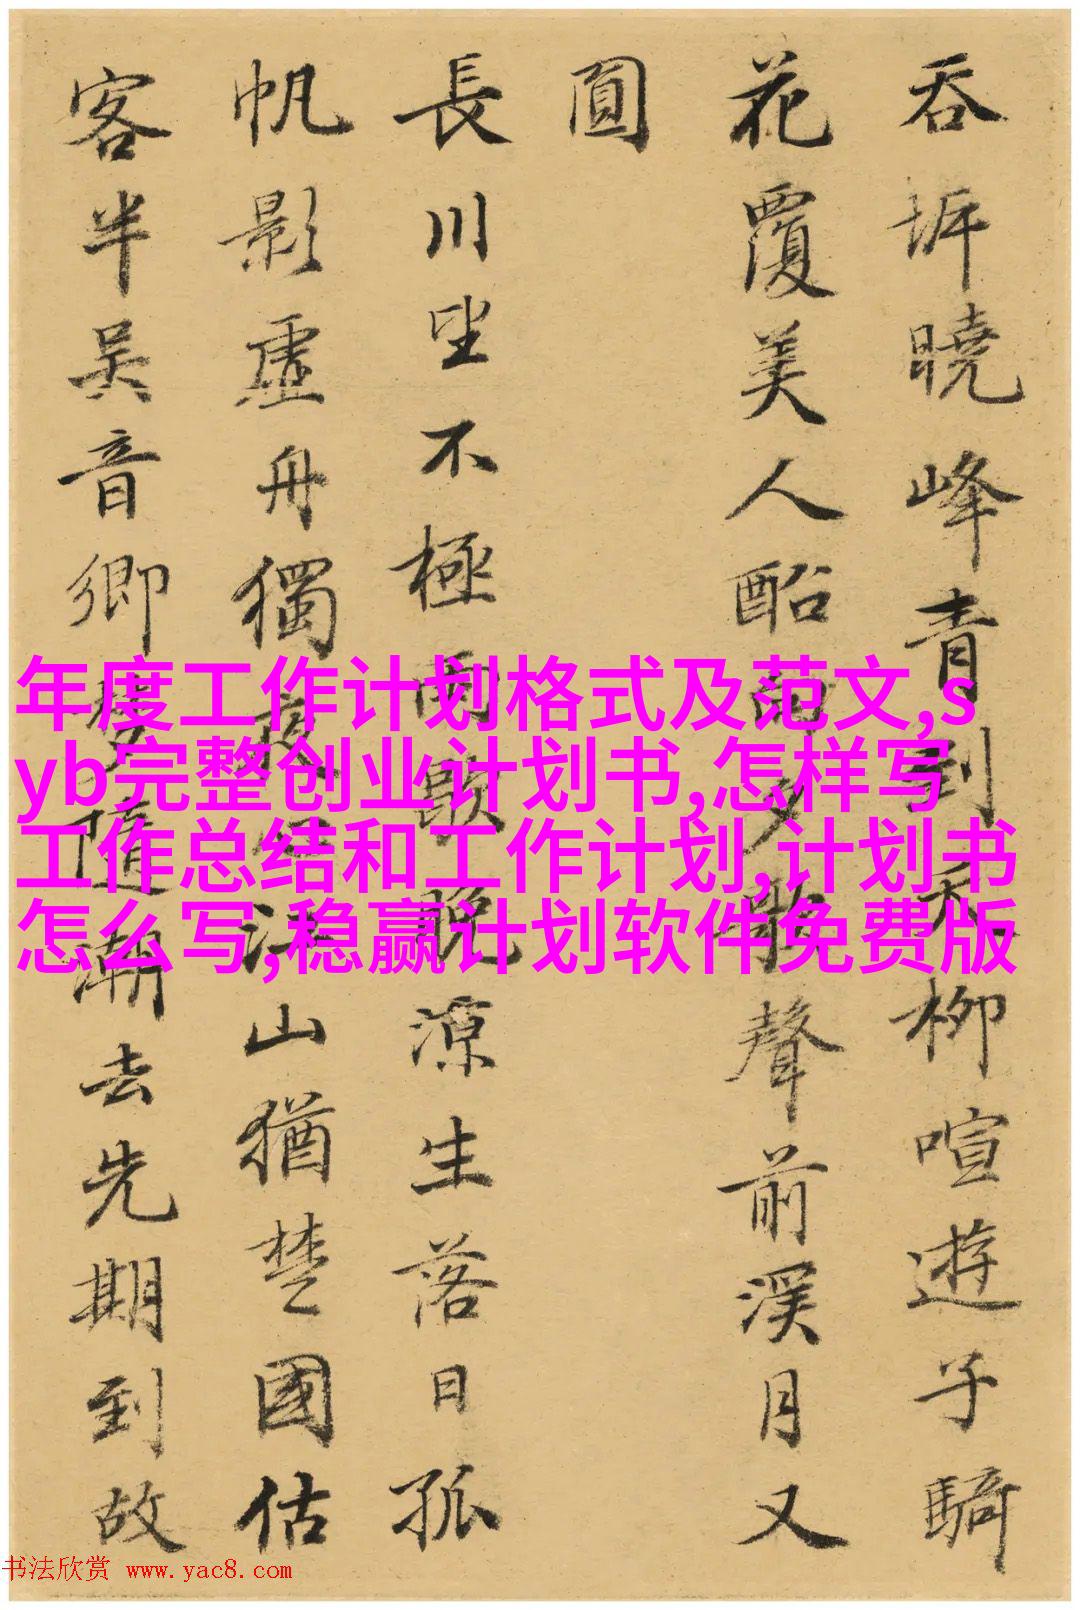 吞坼曉峰青到天柳喧遊子騎
花覆美人船雨夕歌聲前溪月又
圓
長川坐不極雨歇晚涼生落日孤
帆影虛舟獨江山猶楚國估
客半吳音鄉夢隨潮去先期到故
年度工作计划格式及范文,s
yb完整创业计划书,怎样写
工作总结和工作计划,计划书
怎么写,稳赢计划软件免费版
书法欣赏 www.yac8.com